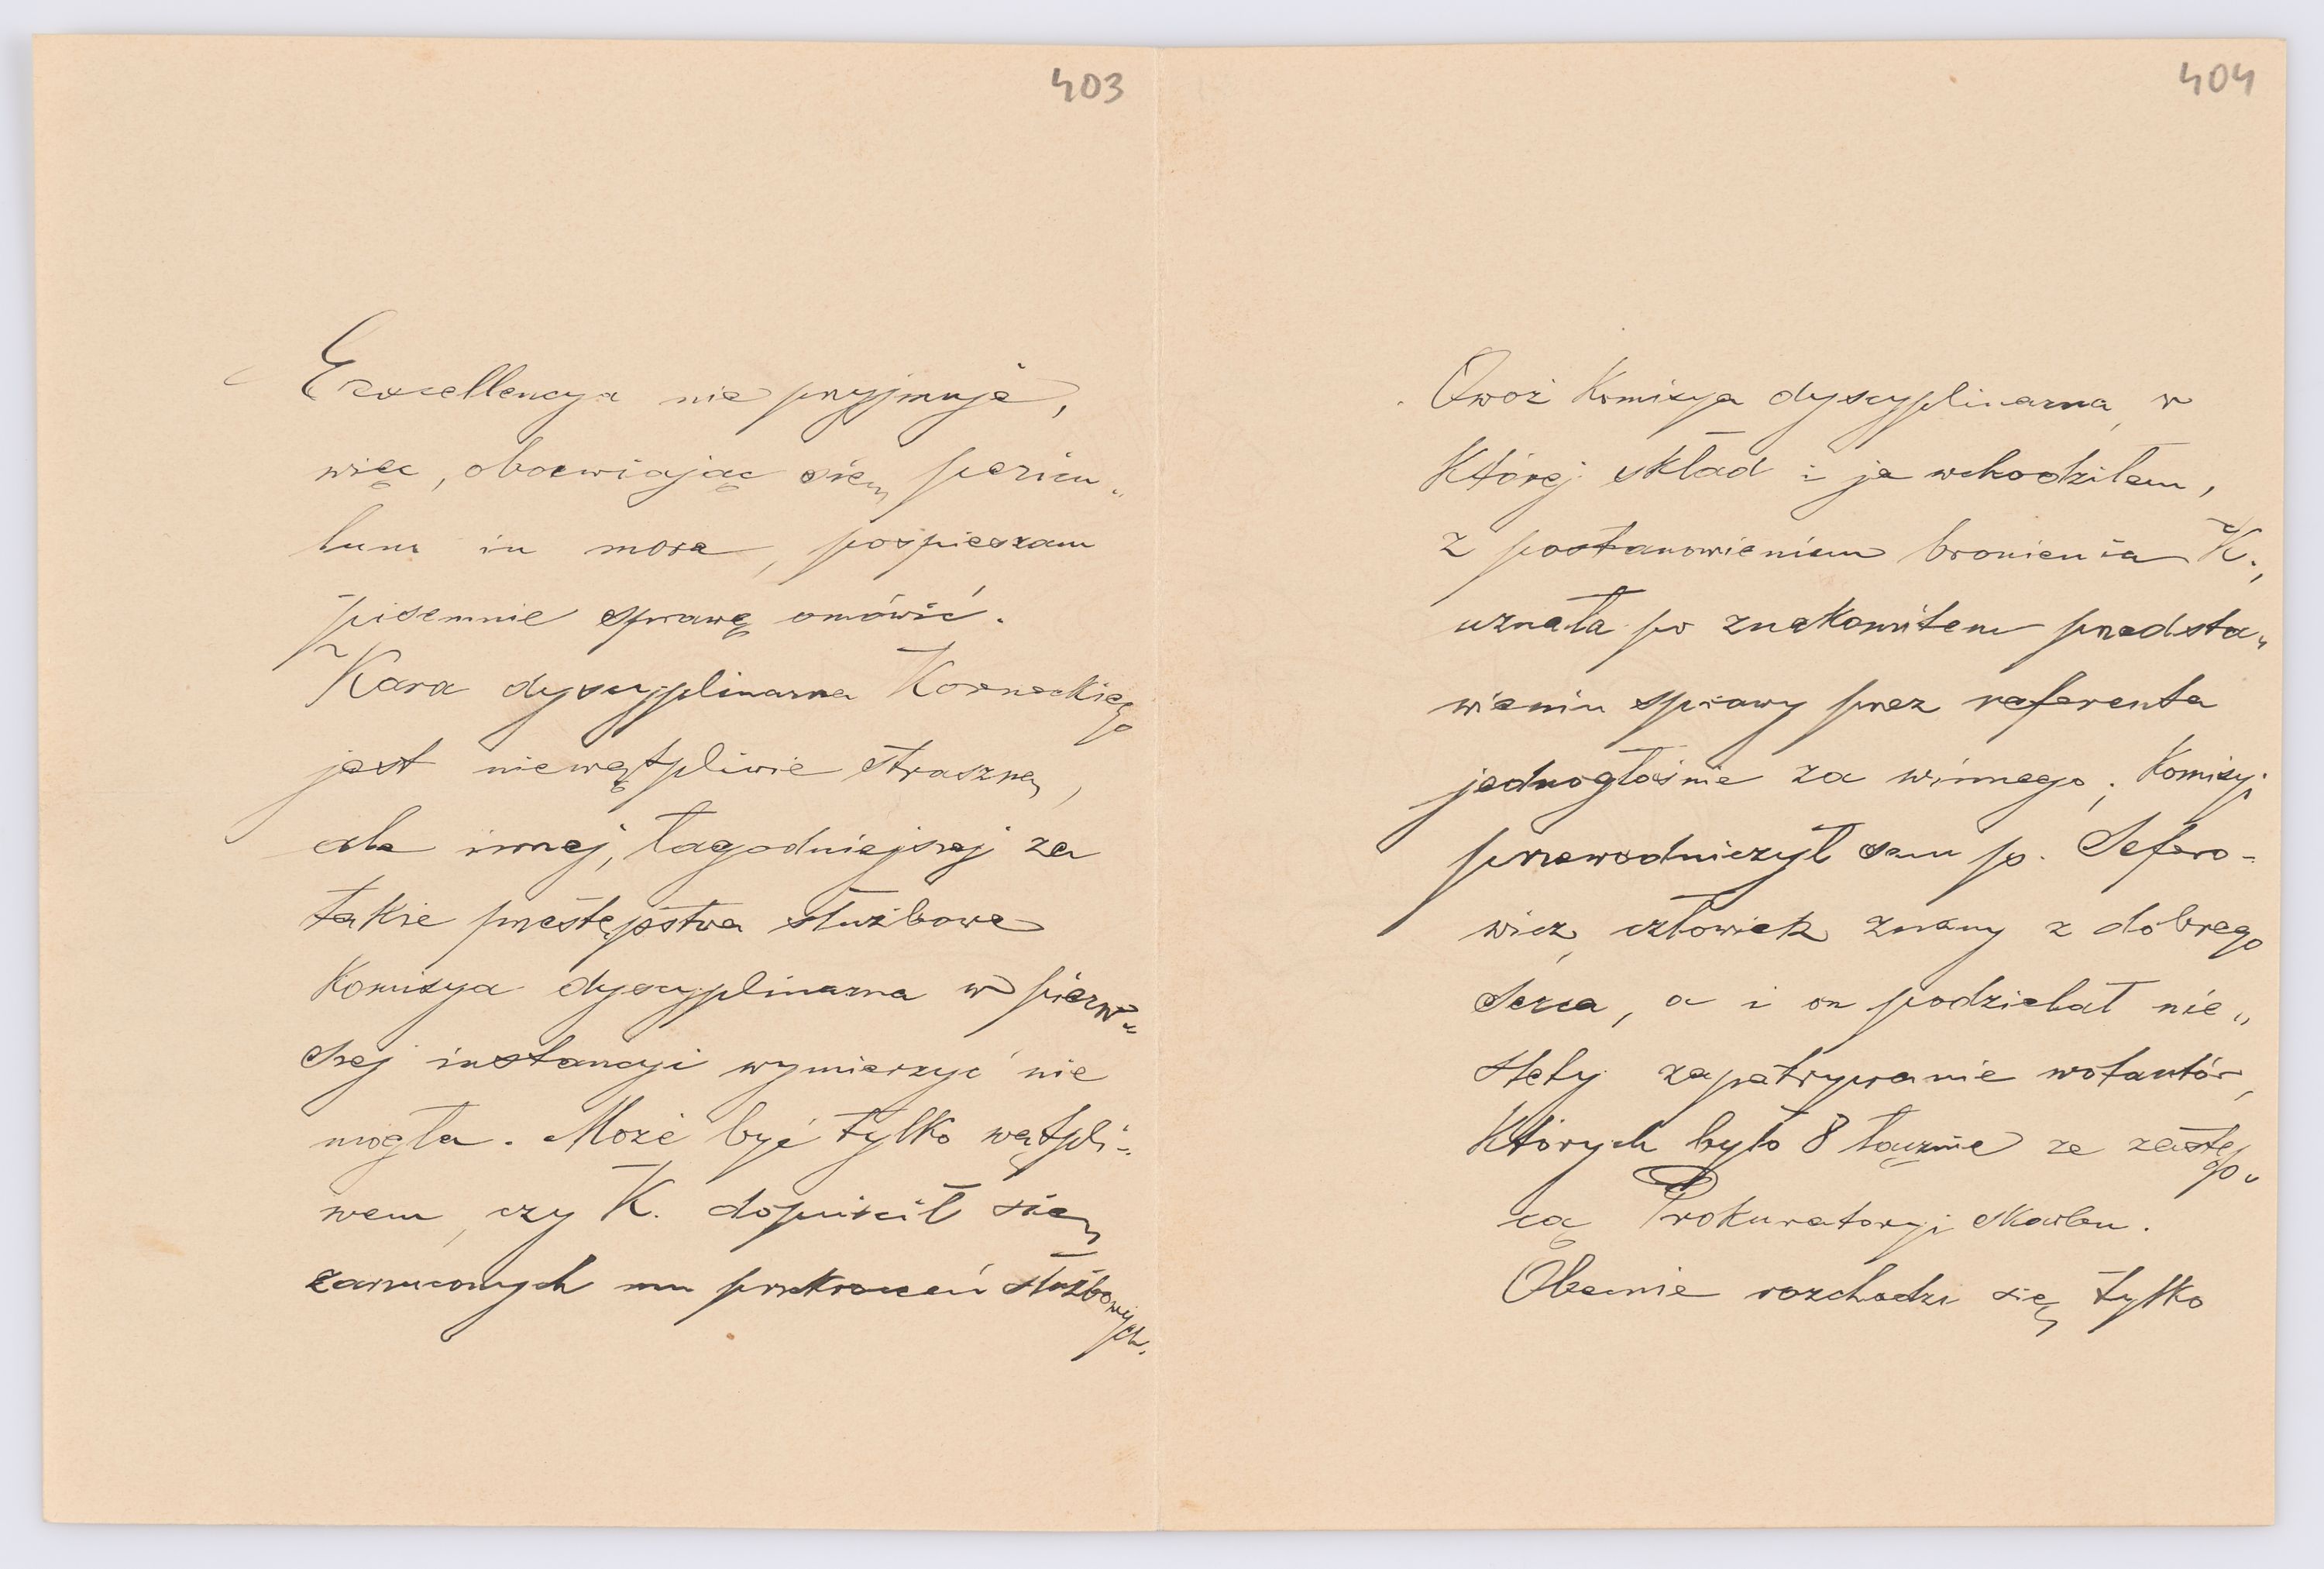 403
Excellencya nie przyjmuje,
więc, obawiając się, pericu„
lum in mora, pospieszam
pisemnie sprawę omówić.
Kara dyscyplinarna Korneckiego
jest niewątpliwie straszną,
ale innej, łagodniejszej za
takie przestępstwa służbowe
Komisya dyscyplinarna w pierw„
szej instancyi wymierzyć nie
mogła. Może być tylko wątpli„
wem, czy K. dopuścił się
zarzuconych mu przekroczeń służbowych.
404
Owoż Komisya dyscyplinarna, w
której skład i ja wchodziłem,
z postanowieniem bronienia K.,
uznała po znakomitem przedsta„
wieniu sprawy przez referenta
jednogłośnie za winnego; Komisyi
przewodniczył sam p. Sefero-
wicz, człowiek znany z dobrego
serca, a i on podzielał nie„
stety zapatrywanie wotantów,
których było 8 łącznie ze zastęp„
cą Prokuratoryi skarbu.
Obecnie rozchodzi się tylko